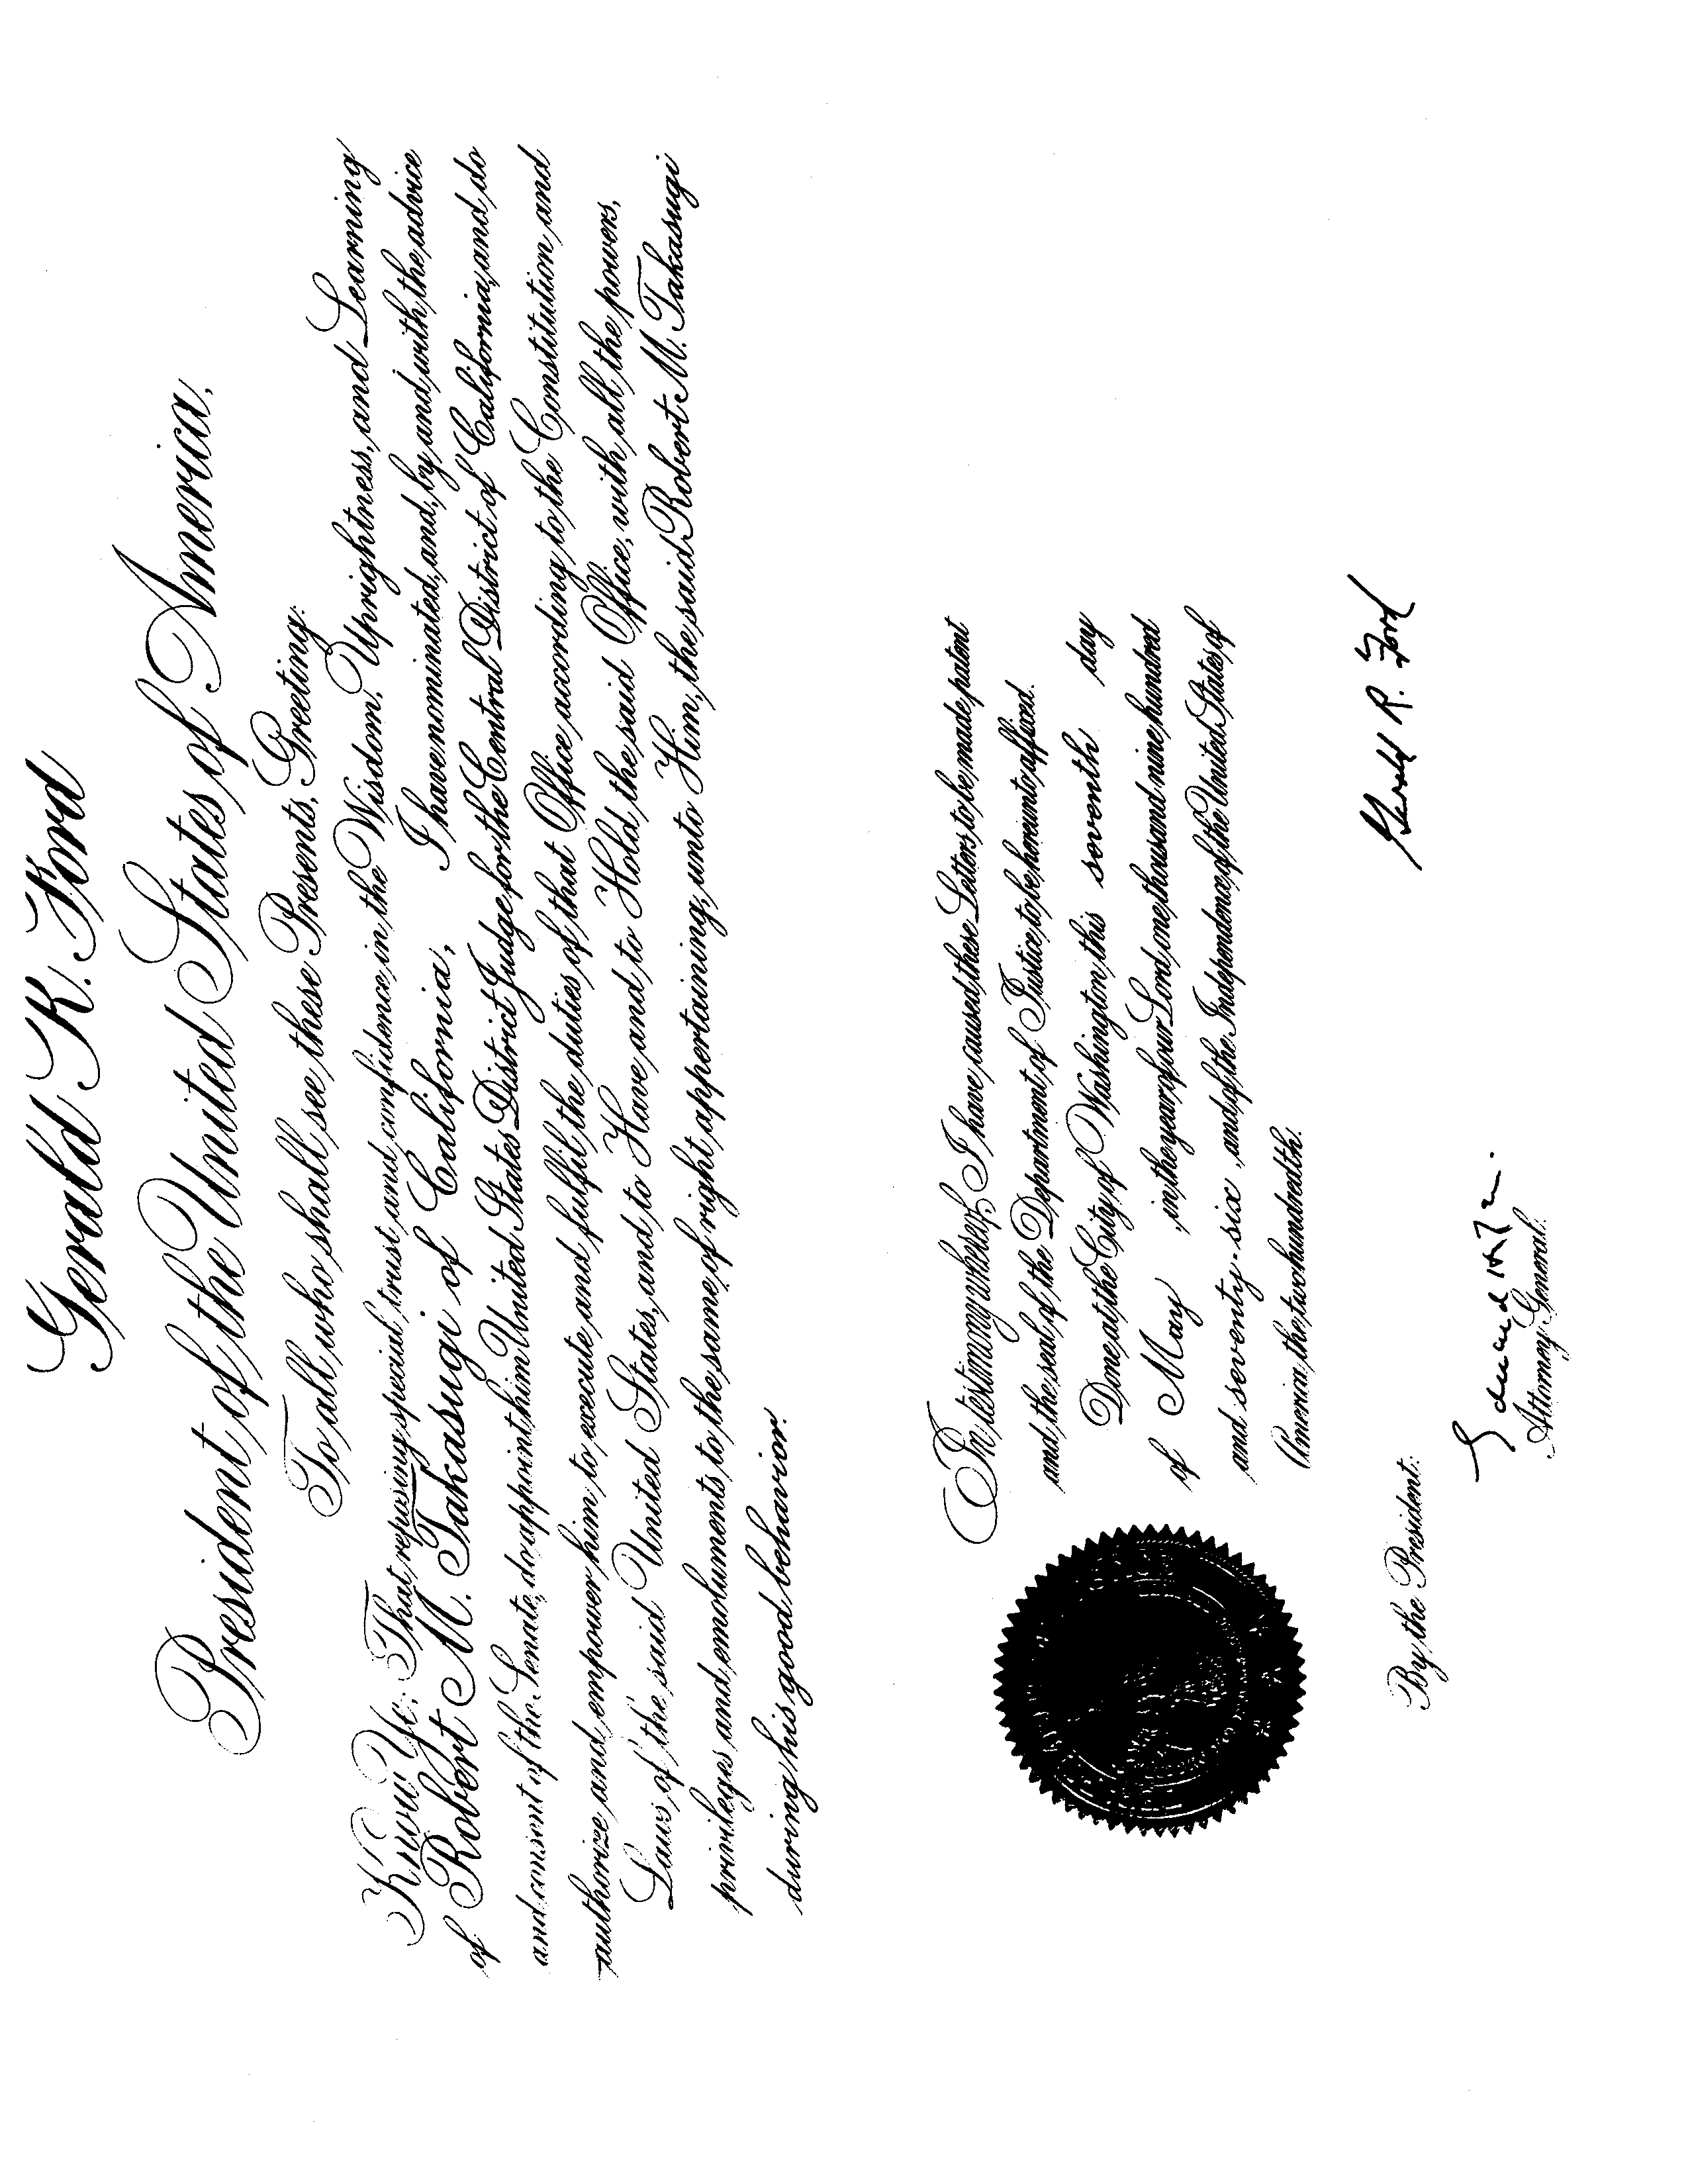 Gerald R. Ford
President of the United States of America,
To all who shall see these Presents, Greeting:
Know Ye; That reposing special trust and confidence in the Wisdom, Uprightness, and Learning
of Robert M. Takasugi of California, I have nominated, and, by and with the advice
and consent of the Senate, do appoint him United States District Judge for the Central District of California, and do
authorize and empower him to execute and fulfil the duties of that Office according to the Constitution and
Laws of the said United States, and to Have and to Hold the said Office, with all the powers,
privileges and emoluments to the same of right appertaining, unto Him, the said Robert M. Takasugi
during his good behavior.
In testimony whereof, I have caused these Letters to be made patent
and the seal of the Department of Justice to be hereunto affixed.
Done at the City of Washington this seventh day
of May, in the year of our Lord one thousand nine hundred
and seventy-six, and of the Independence of the United States of
America the two hundredth.
Gerald R. Ford
By the President:
Edward H.
Attorney General.